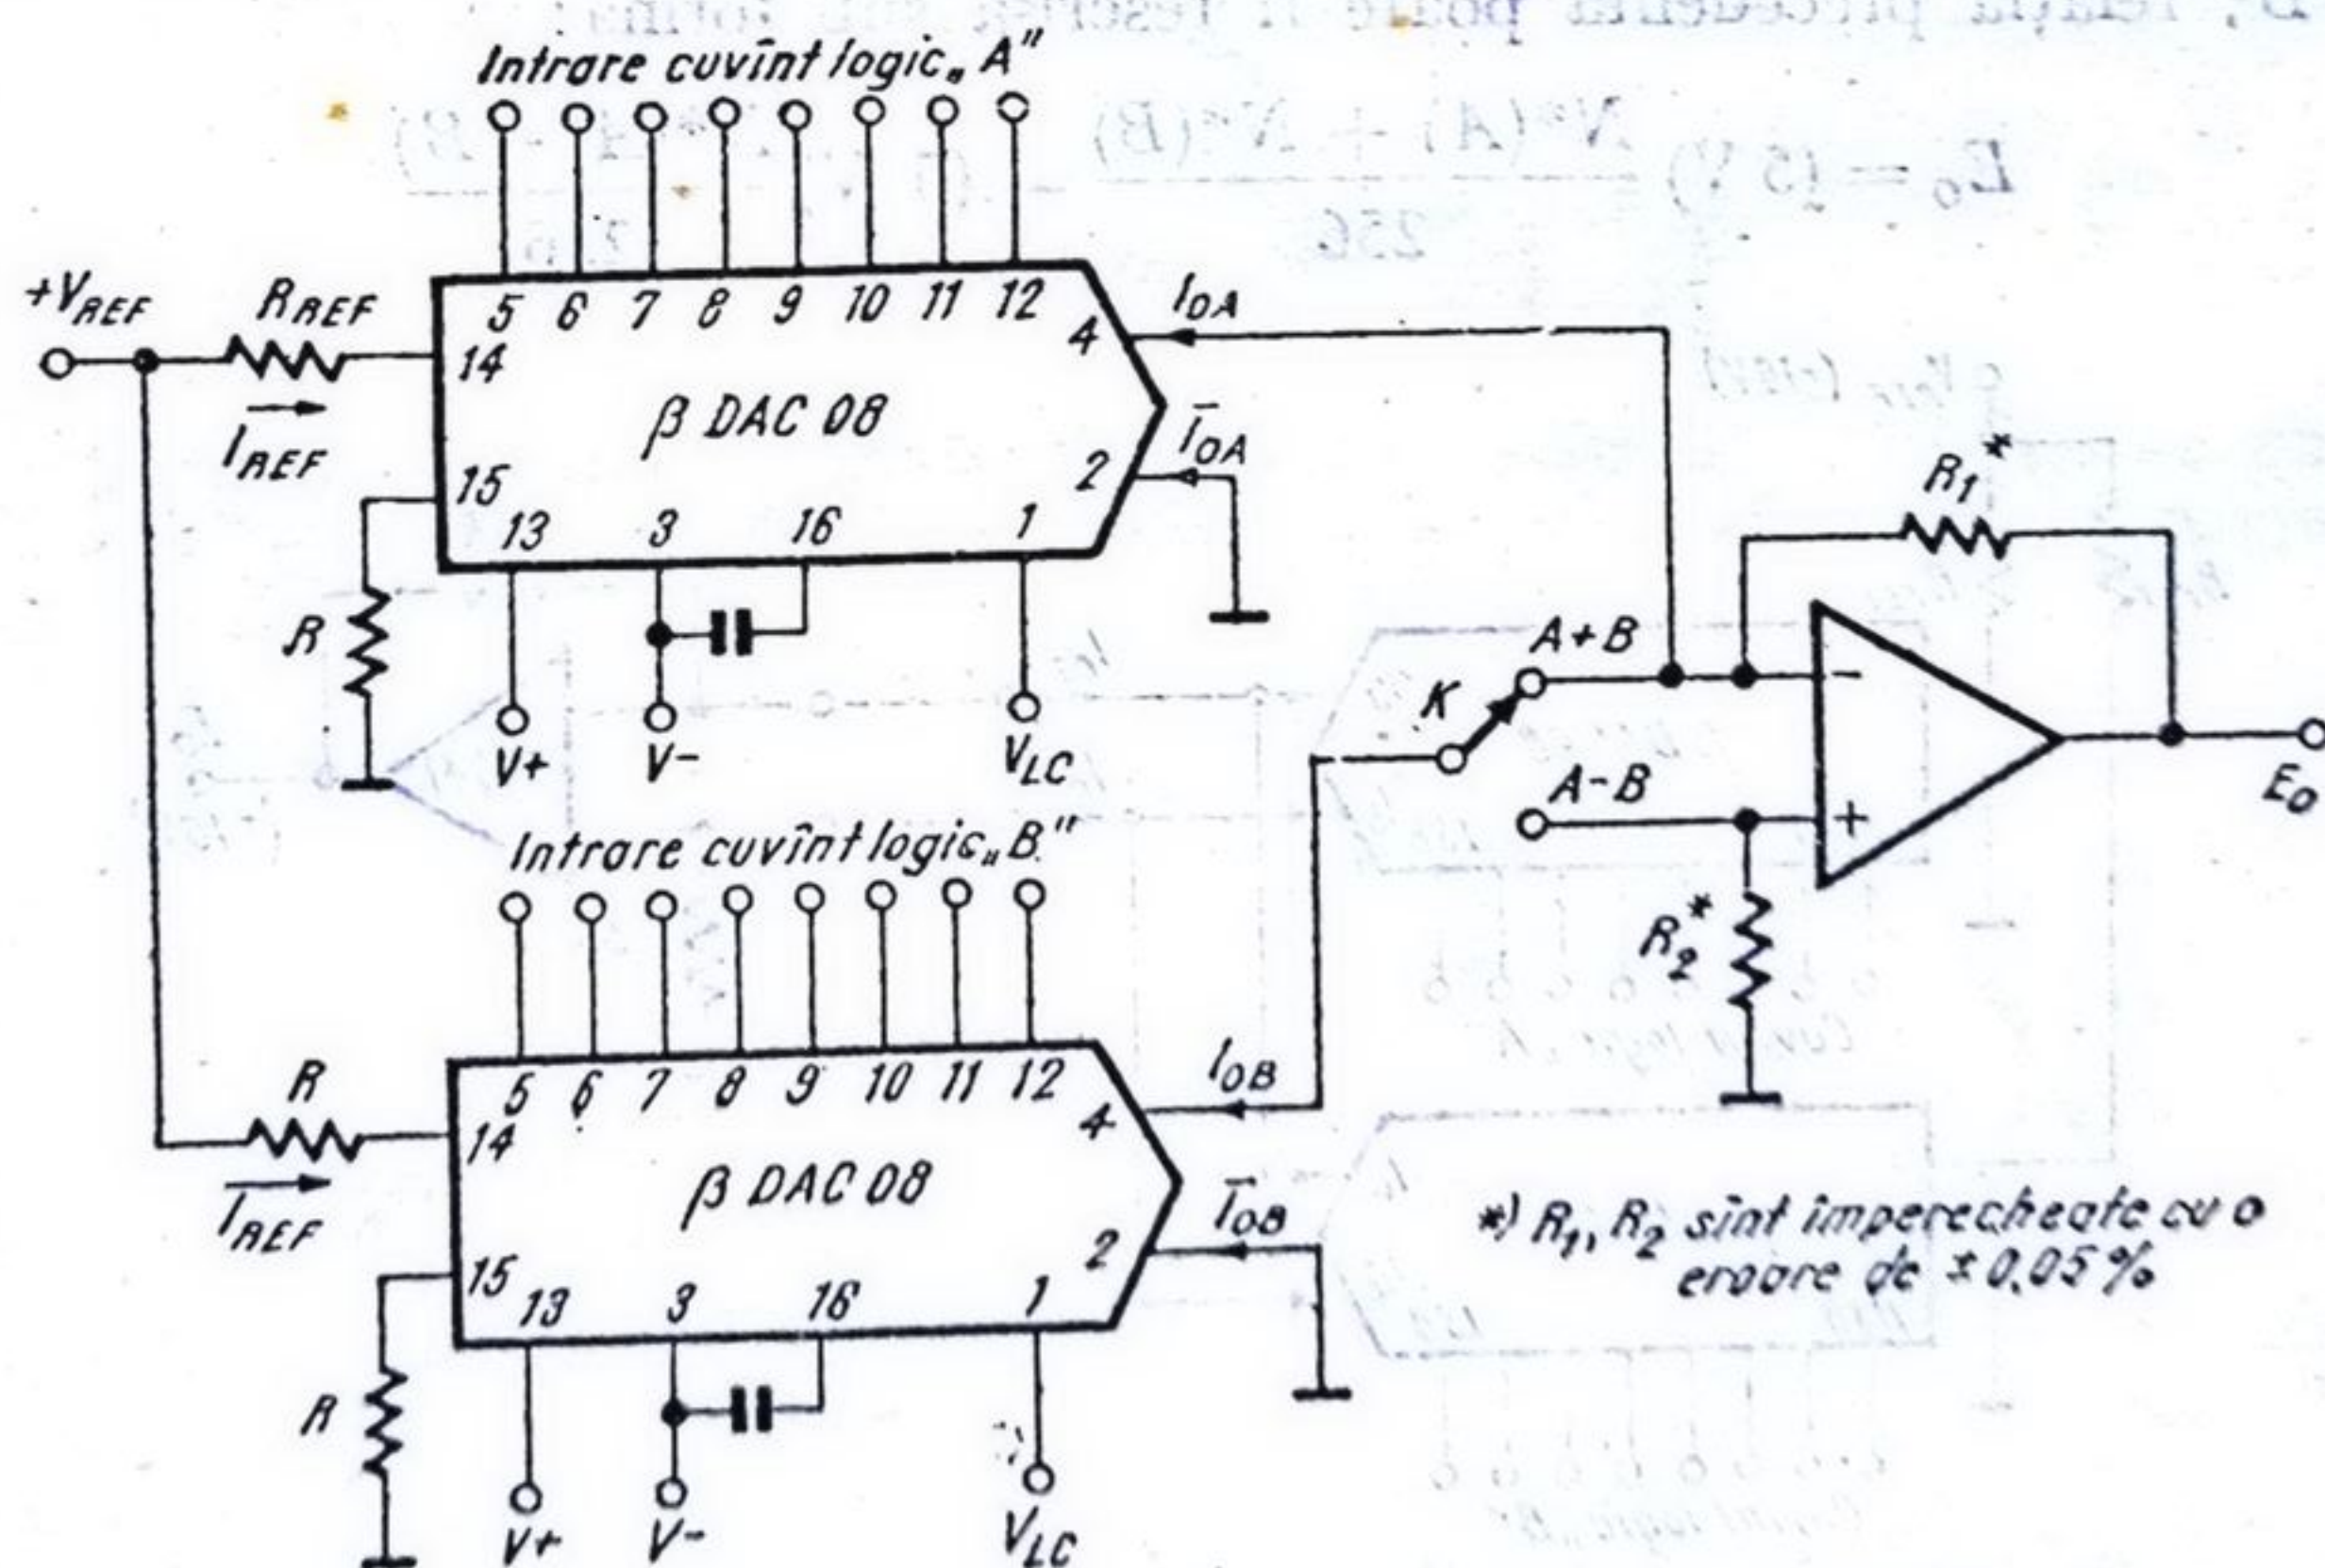 Intrare cuvînt logic „A"
+VREF
RREF
IREF
5 6 7 8 9 10 11 12
14
4
IOA
β DAC 08
2
ĪOA
15
13 3 16 1
R
V+
V-
VLC
R1*
A+B
K
A-B
-
+
EO
R2*
Intrare cuvînt logic „B"
R
IREF
5 6 7 8 9 10 11 12
14
4
IOB
β DAC 08
2
ĪOB
15
13 3 16 1
R
V+
V-
VLC
*) R1, R2 sînt împerecheate cu o
eroare de ±0,05%